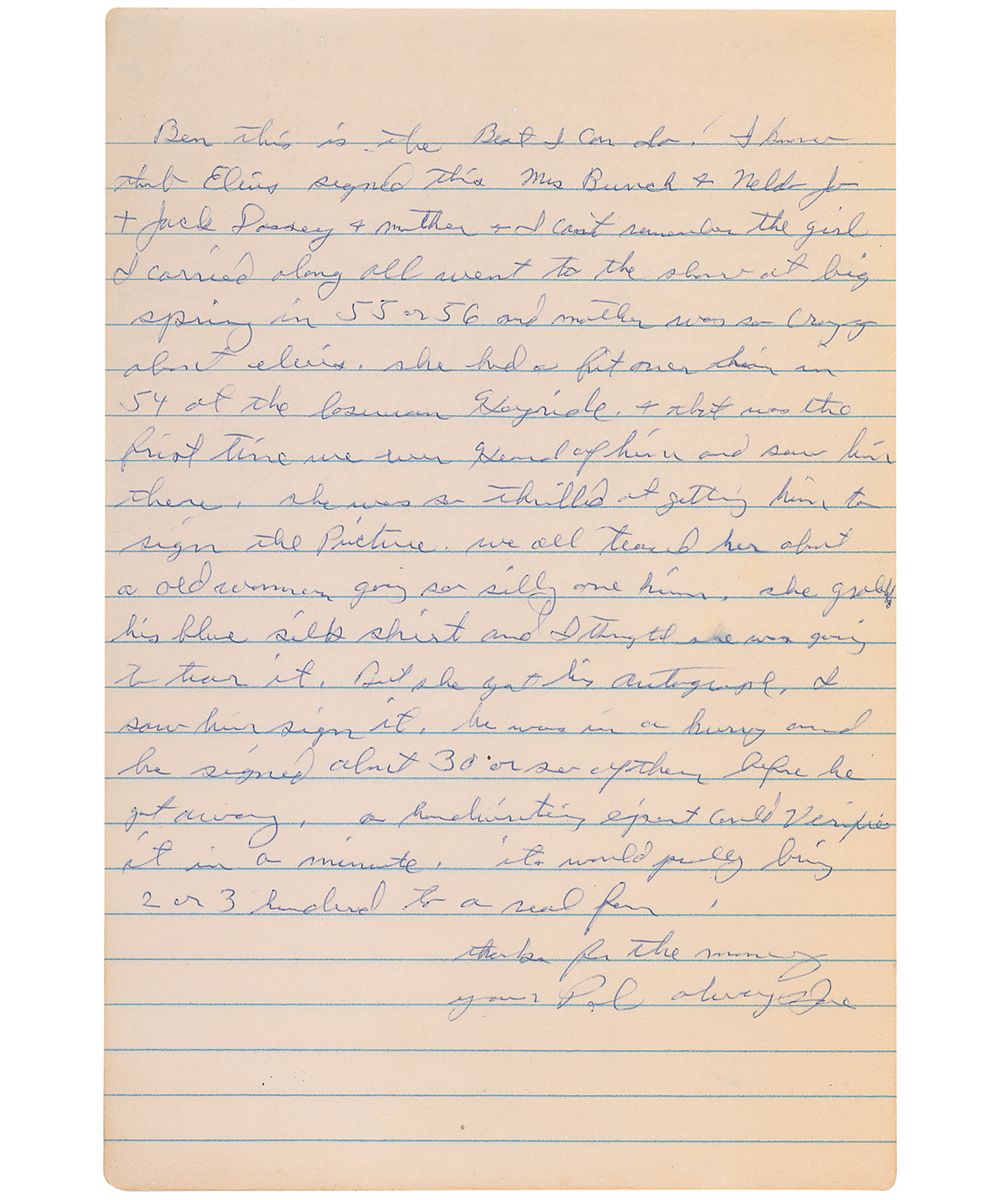 Ben this is the Best I Can do! I know
that Elvis signed this Mrs Bunch & Nelda Jo
+ Jack Dossey & mother & I cant remember the girl
I carried along all went to the show at big
spring in 55 or 56 and mother was so Crazy
about elvis. she had a fit over him in
54 at the Hayride. & that was the
first time we ever Heard of him and saw him
there. she was so thrilled at getting him to
sign the Picture. we all teased her about
a old women going so silly one him. she grabbed
his blue silk shirt and I thought she was going
to tear it. But she got his autograph. I
saw him sign it. he was in a hurry and
he signed about 30 or so of them before he
got away. a handwriting expert Could Verifie
it in a minute. its would bring
2 or 3 hunderd to a real fan
thanks for the money
your Pal always Joe